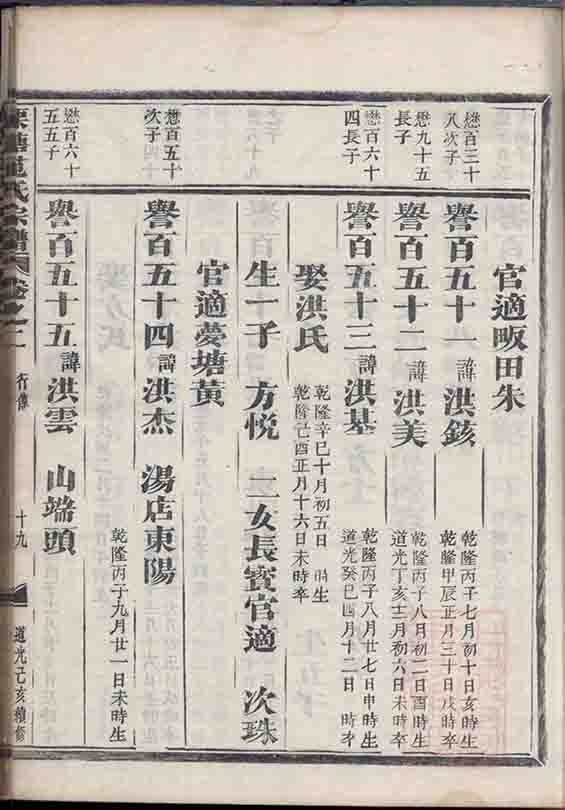 官適畈田朱
懋百三十
八次子
譽百五十一 諱洪鋑
乾隆丙子七月初十日亥時生
乾隆甲辰正月三十日戌時卒
懋九十五
長子
譽百五十二 諱洪美
乾隆丙子八月初二日酉時生
道光丁亥十二月初六日未時卒
懋百六十
四長子
譽百五十三 諱洪基
乾隆丙子八月廿七日申時生
道光癸巳四月十二日 時卒
娶洪氏
乾隆辛巳十月初五日 時生
乾隆己酉正月十六日未時卒
生一子 方悦 二女長寳官適 次珠
官適夢塘黃
懋百五十
次子
譽百五十四 諱洪杰 湯店東陽
乾隆丙子九月廿一日未時生
懋百六十
五五子
譽百五十五 諱洪雲 山端頭
氏宗譜 卷之二 行傳 十九 道光己亥續修